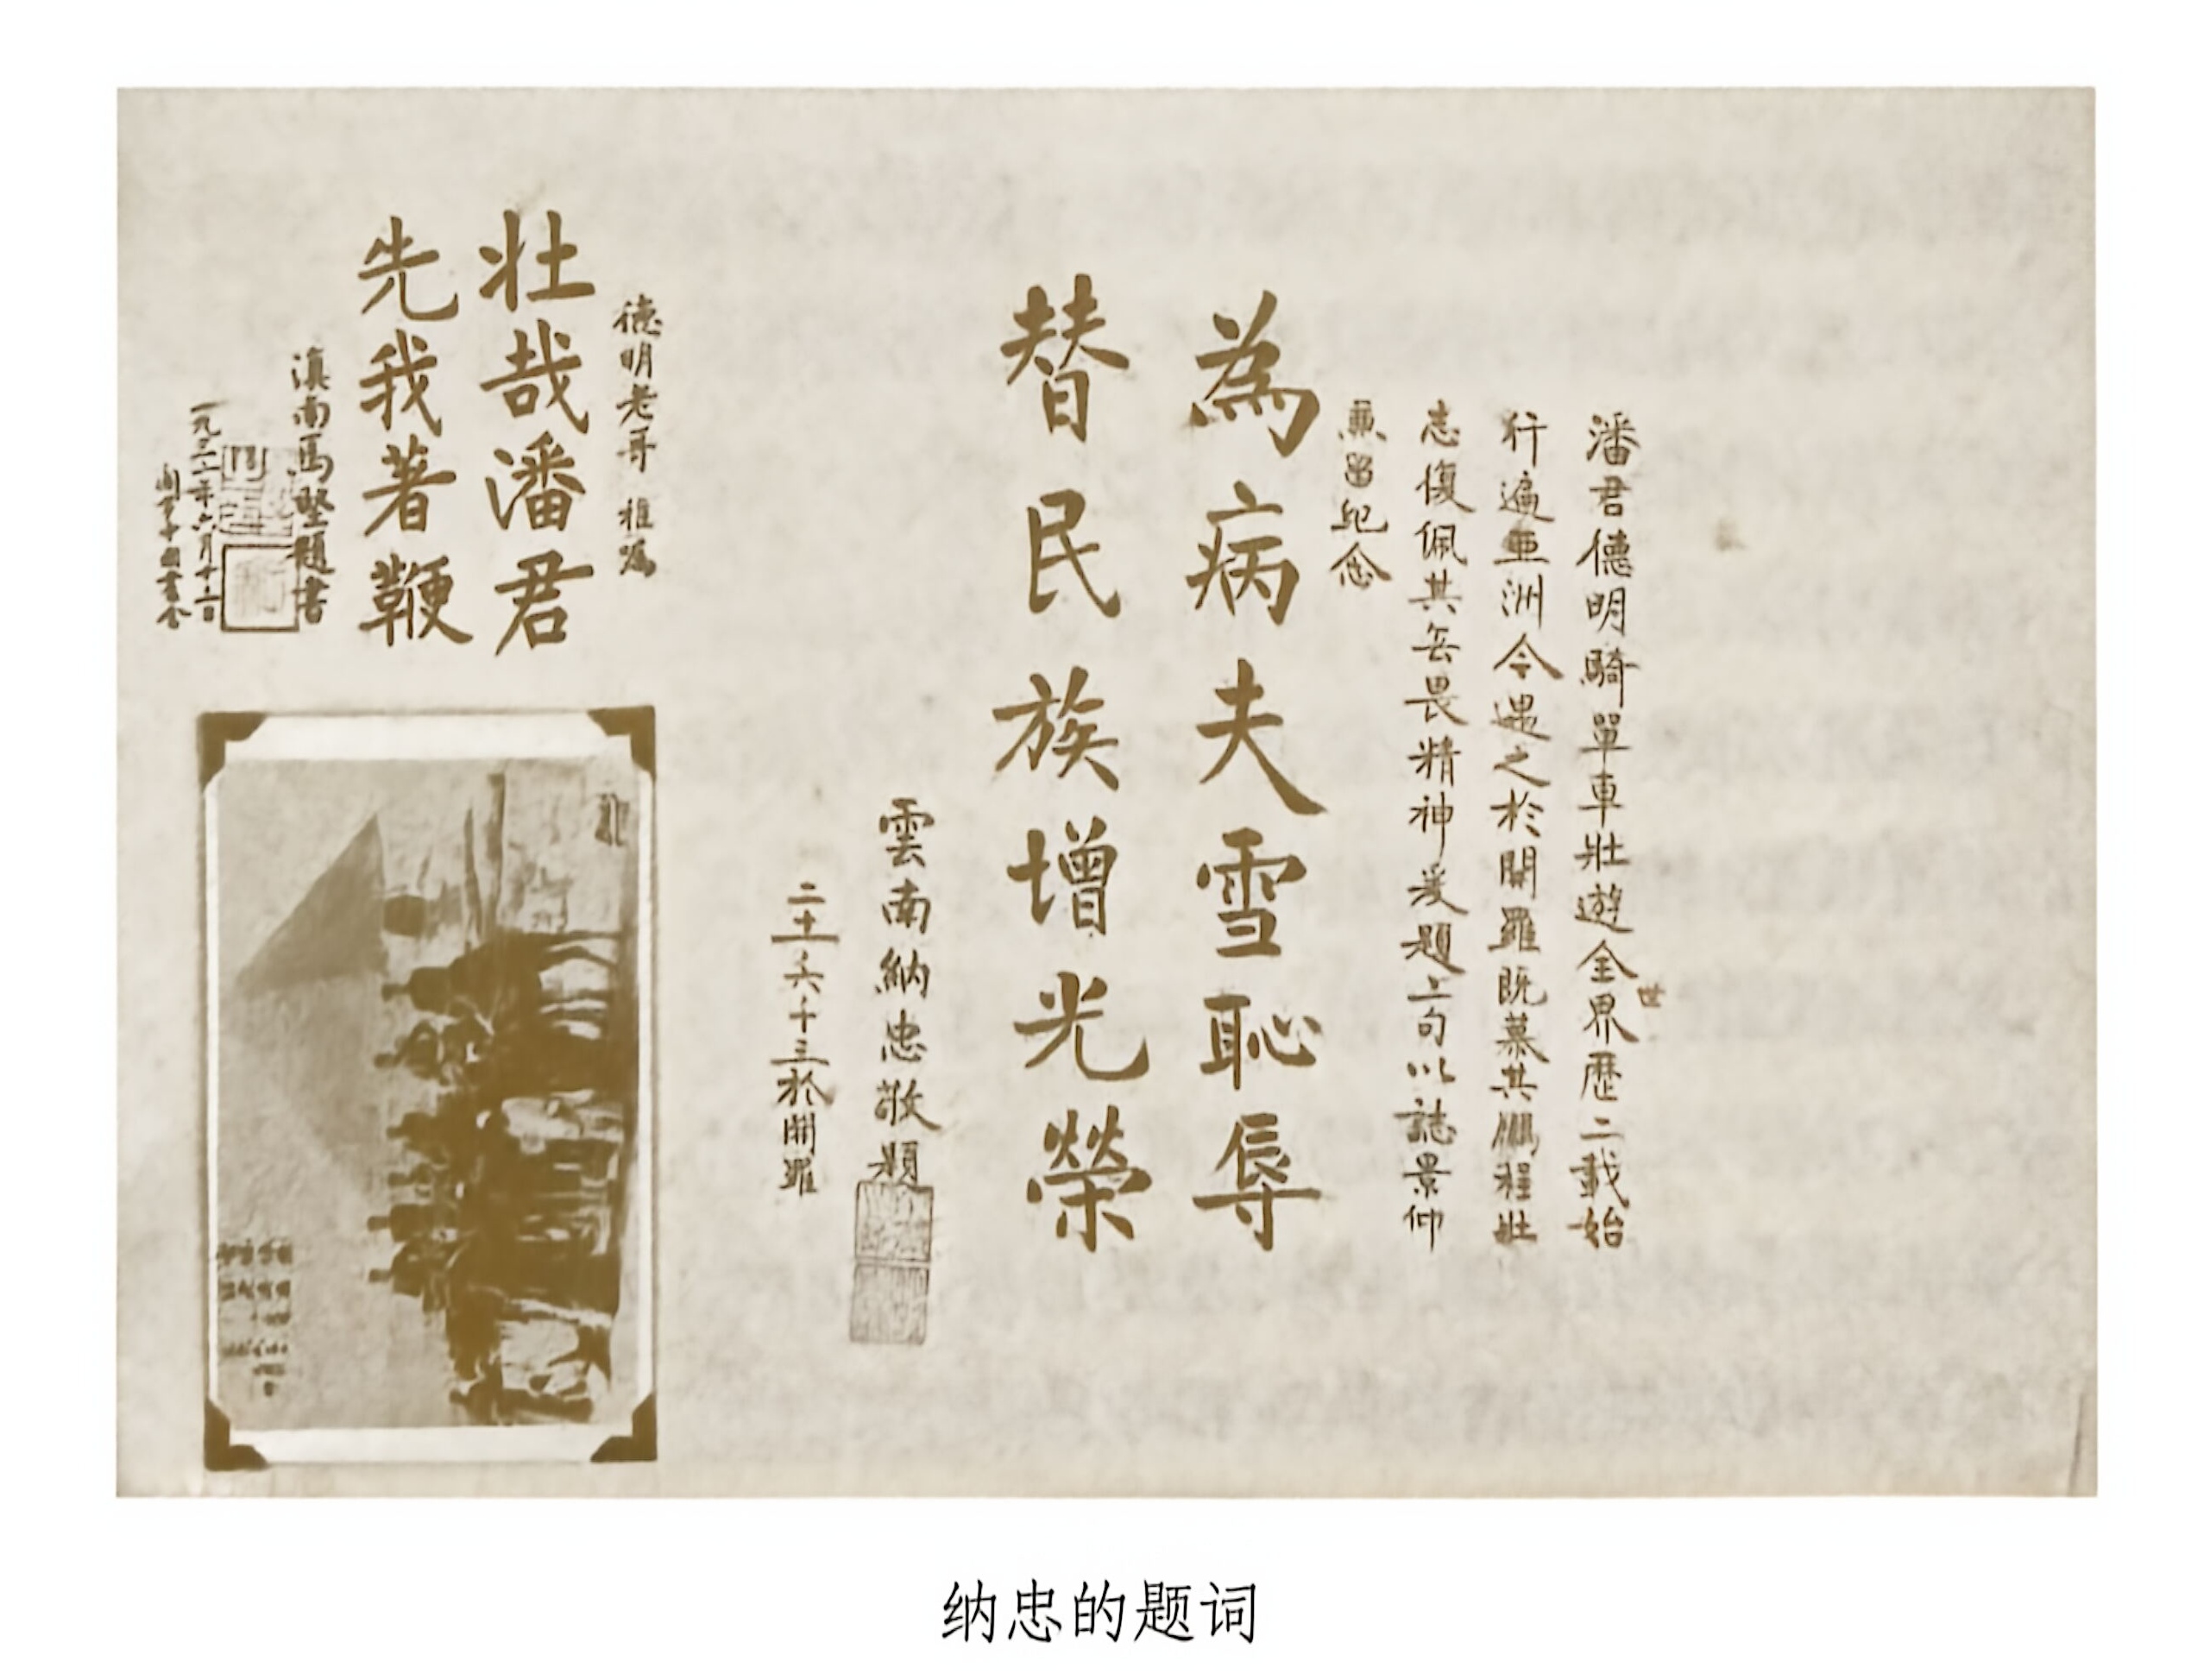 潘君德明騎單車壯遊全世界歷二載始
行遍亞洲今遇之於開羅既慕其鵬程壯
志復佩其無畏精神爰題二句以誌景仰
兼留紀念
為病夫雪恥辱
替民族增光榮
雲南納忠敬題
二十一、六、十三於開羅
德明老哥 雅囑
壯哉潘君
先我著鞭
滇南馬堅題書
一九三二年六月十三日
纳忠的题词